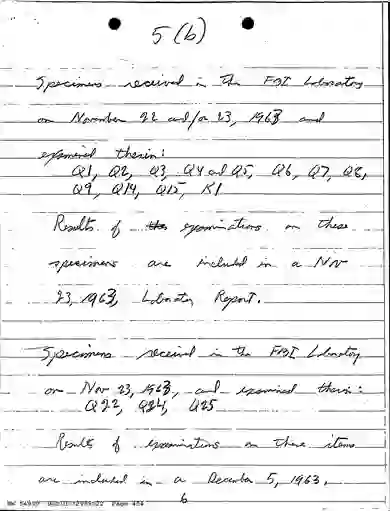 5(b)
Specimens received in the FBI Laboratory
on November 22 and/or 23, 1963 and
examined therein:
Q1, Q2, Q3, Q4 and Q5, Q6, Q7, Q8,
Q9, Q14, Q15, K1
Results of the examinations on these
specimens are included in a Nov
23, 1963, Laboratory Report.
Specimens received in the FBI Laboratory
on Nov 23, 1963, and examined therein:
Q22, Q24, Q25
Results of examinations on these items
are included in a December 5, 1963,
6
Page 454